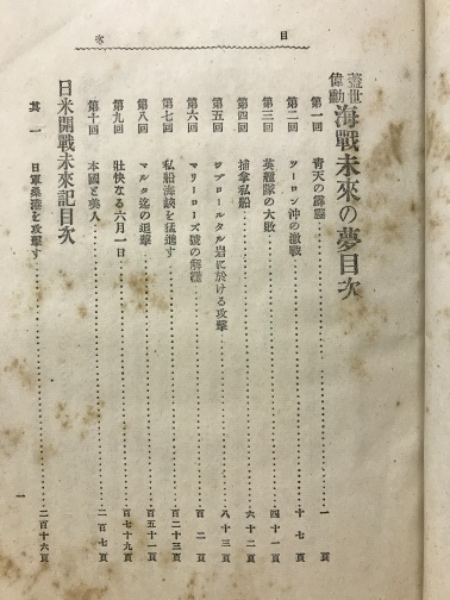 目次
蓋世偉勳 海戰未來の夢目次
第一回 靑天の霹靂 一頁
第二回 ツーロン沖の激戰 十七頁
第三回 英艦隊の大敗 四十一頁
第四回 捕拿私船 六十二頁
第五回 ヂブロールタル岩に於ける攻擊 八十三頁
第六回 マリーローズ號の 百二頁
第七回 私船海峽を猛進す 百二十三頁
第八回 マルタ迄の追擊 百五十一頁
第九回 壯快なる六月一日 百七十九頁
第十回 本國と美人 二百七頁
日米開戰未來記目次
其一 日軍桑港を攻擊す 二百十六頁
一